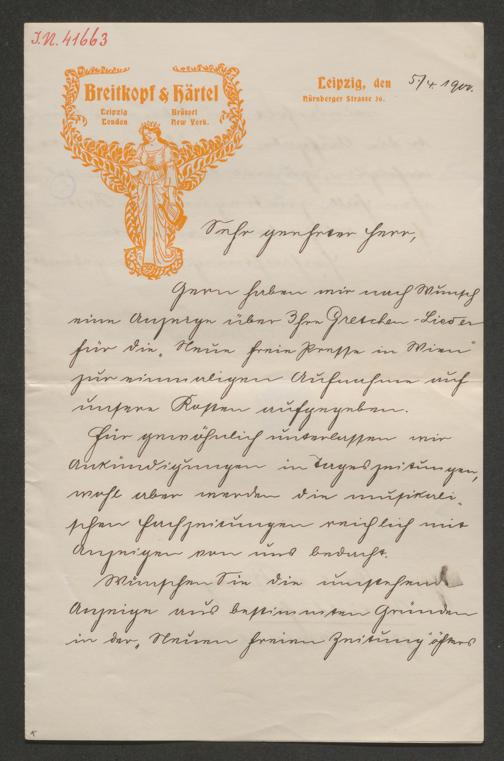 I.N. 41663
Breitkopf & Härtel
Leipzig Brüssel
London New York.
Leipzig, den 5/4 1900.
Nürnberger Strasse 36.
Sehr geehrter Herr,
Gern haben wir nach Wunsch
eine Anzeige über Ihre Gretchen-Lieder
für die „Neue freie Presse in Wien"
zur einmaligen Aufnahme auf
unsere Kosten aufgegeben.
Für gewöhnlich unterlassen wir
Ankündigungen in Tageszeitungen,
wohl aber werden die musikali-
schen Fachzeitungen reichlich mit
Anzeigen von uns bedacht.
Wünschen Sie die umstehende
Anzeige aus bestimmten Gründen
in der „Neuen freien Zeitung" öfters